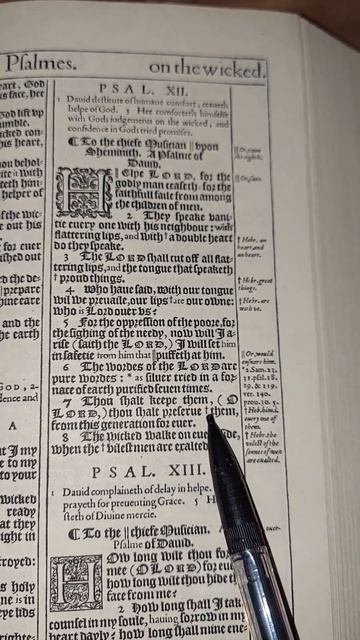 Psalmes.
on the wicked.
PSAL. XII.
1 Dauid destitute of humane comfort, craueth
helpe of God. 3 Hee comforteth himselfe
with Gods iudgements on the wicked, and
confidence in Gods tried promises.
¶ To the chiefe Musician || vpon
Sheminith. A Psalme of
Dauid.
Elpe LORD, for the
godly man ceaseth; for the
faithfull faile from among
the children of men.
2 They speake vani-
tie euery one with his neighbour: with
flattering lips, and with † a double heart
do they speake.
3 The LORD shall cut off all flat-
tering lips, and the tongue that speaketh
† proud things.
4 Who haue said, with our tongue
wil we preuaile, our lips † are our owne:
who is Lord ouer vs?
5 For the oppression of the poore, for
the sighing of the needy, now will I a-
rise (saith the LORD,) I will set him
in safetie from him that || puffeth at him.
6 The wordes of the LORD are
pure wordes: * as siluer tried in a for-
nace of earth purified seuen times.
7 Thou shalt keepe them, (O
LORD,) thou shalt preserue † them,
from this generation for euer.
8 The wicked walke on euery side,
when the † vilest men are exalted.
PSAL. XIII.
1 Dauid complaineth of delay in helpe.
prayeth for preuenting Grace. 5 H
steth of Diuine mercie.
¶ To the || chiefe Musician.
Psalme of Dauid.
Ow long wilt thou for
mee (O LORD) for eu
how long wilt thou hide t
face from me?
2 How long shall I tak
counsel in my soule, hauing sorrow in my
heart dayly? how long shall mine ene-
|| Or, vpon
the eighth.
|| Or, saue.
† Hebr. an
heart, and
an heart.
† Hebr. great
things.
† Hebr. are
with vs.
|| Or, would
ensnare him.
* 2. Sam. 22.
31. psal. 18.
30. & 119.
ver. 140.
prou. 30. 5.
† Heb. him. i.
euery one of
them.
† Hebr. the
vilest of the
sonnes of men
are exalted.